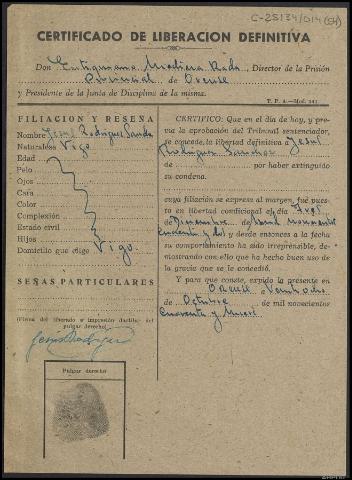 C-25134/014(54)
CERTIFICADO DE LIBERACION DEFINITIVA
Don Rada, Director de la Prisión
Provincial de Orense
y Presidente de la Junta de Disciplina de la misma.
T. P. A.—Mod. 241.
FILIACION Y RESEÑA
Nombre Jesus Rodriguez
Naturaleza Vigo
Edad
Pelo
Ojos
Cara
Color
Complexión
Estado civil
Hijos
Domicilio que elige Vigo
SEÑAS PARTICULARES
(Firma del liberado e impresión dactilar del
pulgar derecho)
Jesus Rodriguez
Pulgar derecho
CERTIFICO: Que en el día de hoy, y pre-
via aprobación del Tribunal sentenciador,
se concede la libertad definitiva a Jesus
Rodriguez Sanchez
por haber extinguido
su condena.
cuya filiación se expresa al margen, fué pues-
to en libertad condicional el día
de de mil novecientos
cuarenta y y desde entonces a la fecha
su comportamiento ha sido irreprensible, de-
mostrando con ello que ha hecho buen uso
de la gracia que se le concedió.
Y para que conste, expido la presente en
Orense a Veintiocho
de Octubre de mil novecientos
Cuarenta y Nueve